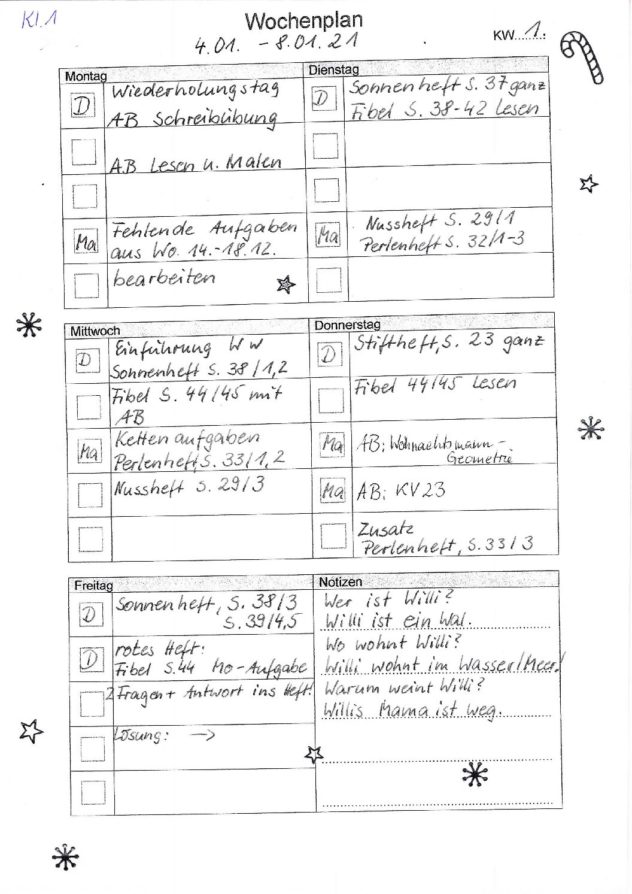 Kl.1
Wochenplan
4.01. - 8.01.21
KW 1.
Montag
D
Wiederholungstag
AB Schreibübung
AB Lesen u. Malen
Ma
Fehlende Aufgaben
aus Wo. 14.-18.12.
bearbeiten
Dienstag
D
Sonnenheft S. 37 ganz
Fibel S. 38-42 lesen
Ma
Nussheft S. 29/1
Perlenheft S. 32/1-3
Mittwoch
D
Einführung W w
Sonnenheft S. 38/1,2
Fibel S. 44/45 mit
AB
Ma
Kettenaufgaben
Perlenheft, S. 33/1,2
Nussheft S. 29/3
Donnerstag
D
Stiftheft, S. 23 ganz
Fibel 44/45 lesen
Ma
AB: Wohnachtsmann-
Geometrie
Ma
AB: KV 23
Zusatz
Perlenheft, S. 33/3
Freitag
D
Sonnenheft, S. 38/3
S. 39/4,5
D
rotes Heft:
Fibel S. 44 Mo-Aufgabe
2 Fragen + Antwort ins Heft!
Lösung: →
Notizen
Wer ist Willi?
Willi ist ein Wal.
Wo wohnt Willi?
Willi wohnt im Wasser/Meer!
Warum weint Willi?
Willis Mama ist weg.